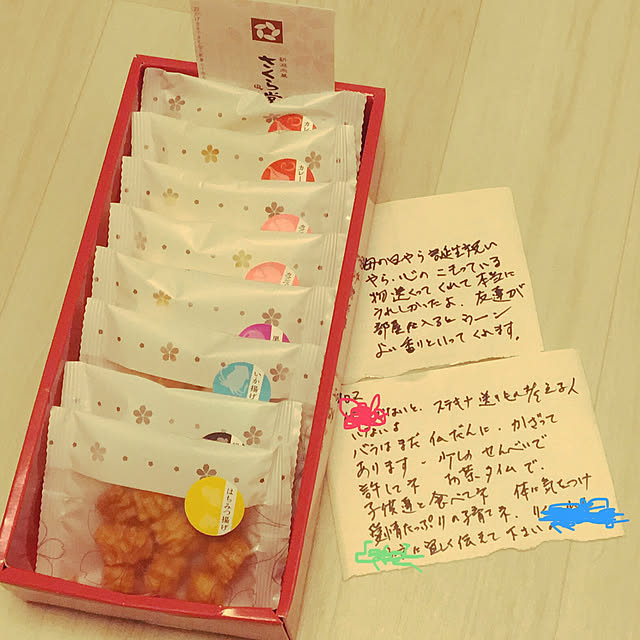 新潟米菓
さくら堂
カレー
いか揚げ
はちみつ揚げ
母の日やら お誕生祝い
やら、心の こもっている
物 送くってくれて 本当に
うれしかったよ、友達が
部屋に入ると ウーン
よい香りといってくれます。
ないと、ステキナ 送りもの 考える人
いないよ
バラはまだ 仏だんに、かざって
あります - 少しの せんべいで
許してネ お茶タイムで、
子供達と食べてネ 体に気をつけ
愛情たっぷりの子育てネ、
に宜しく伝えて下さい